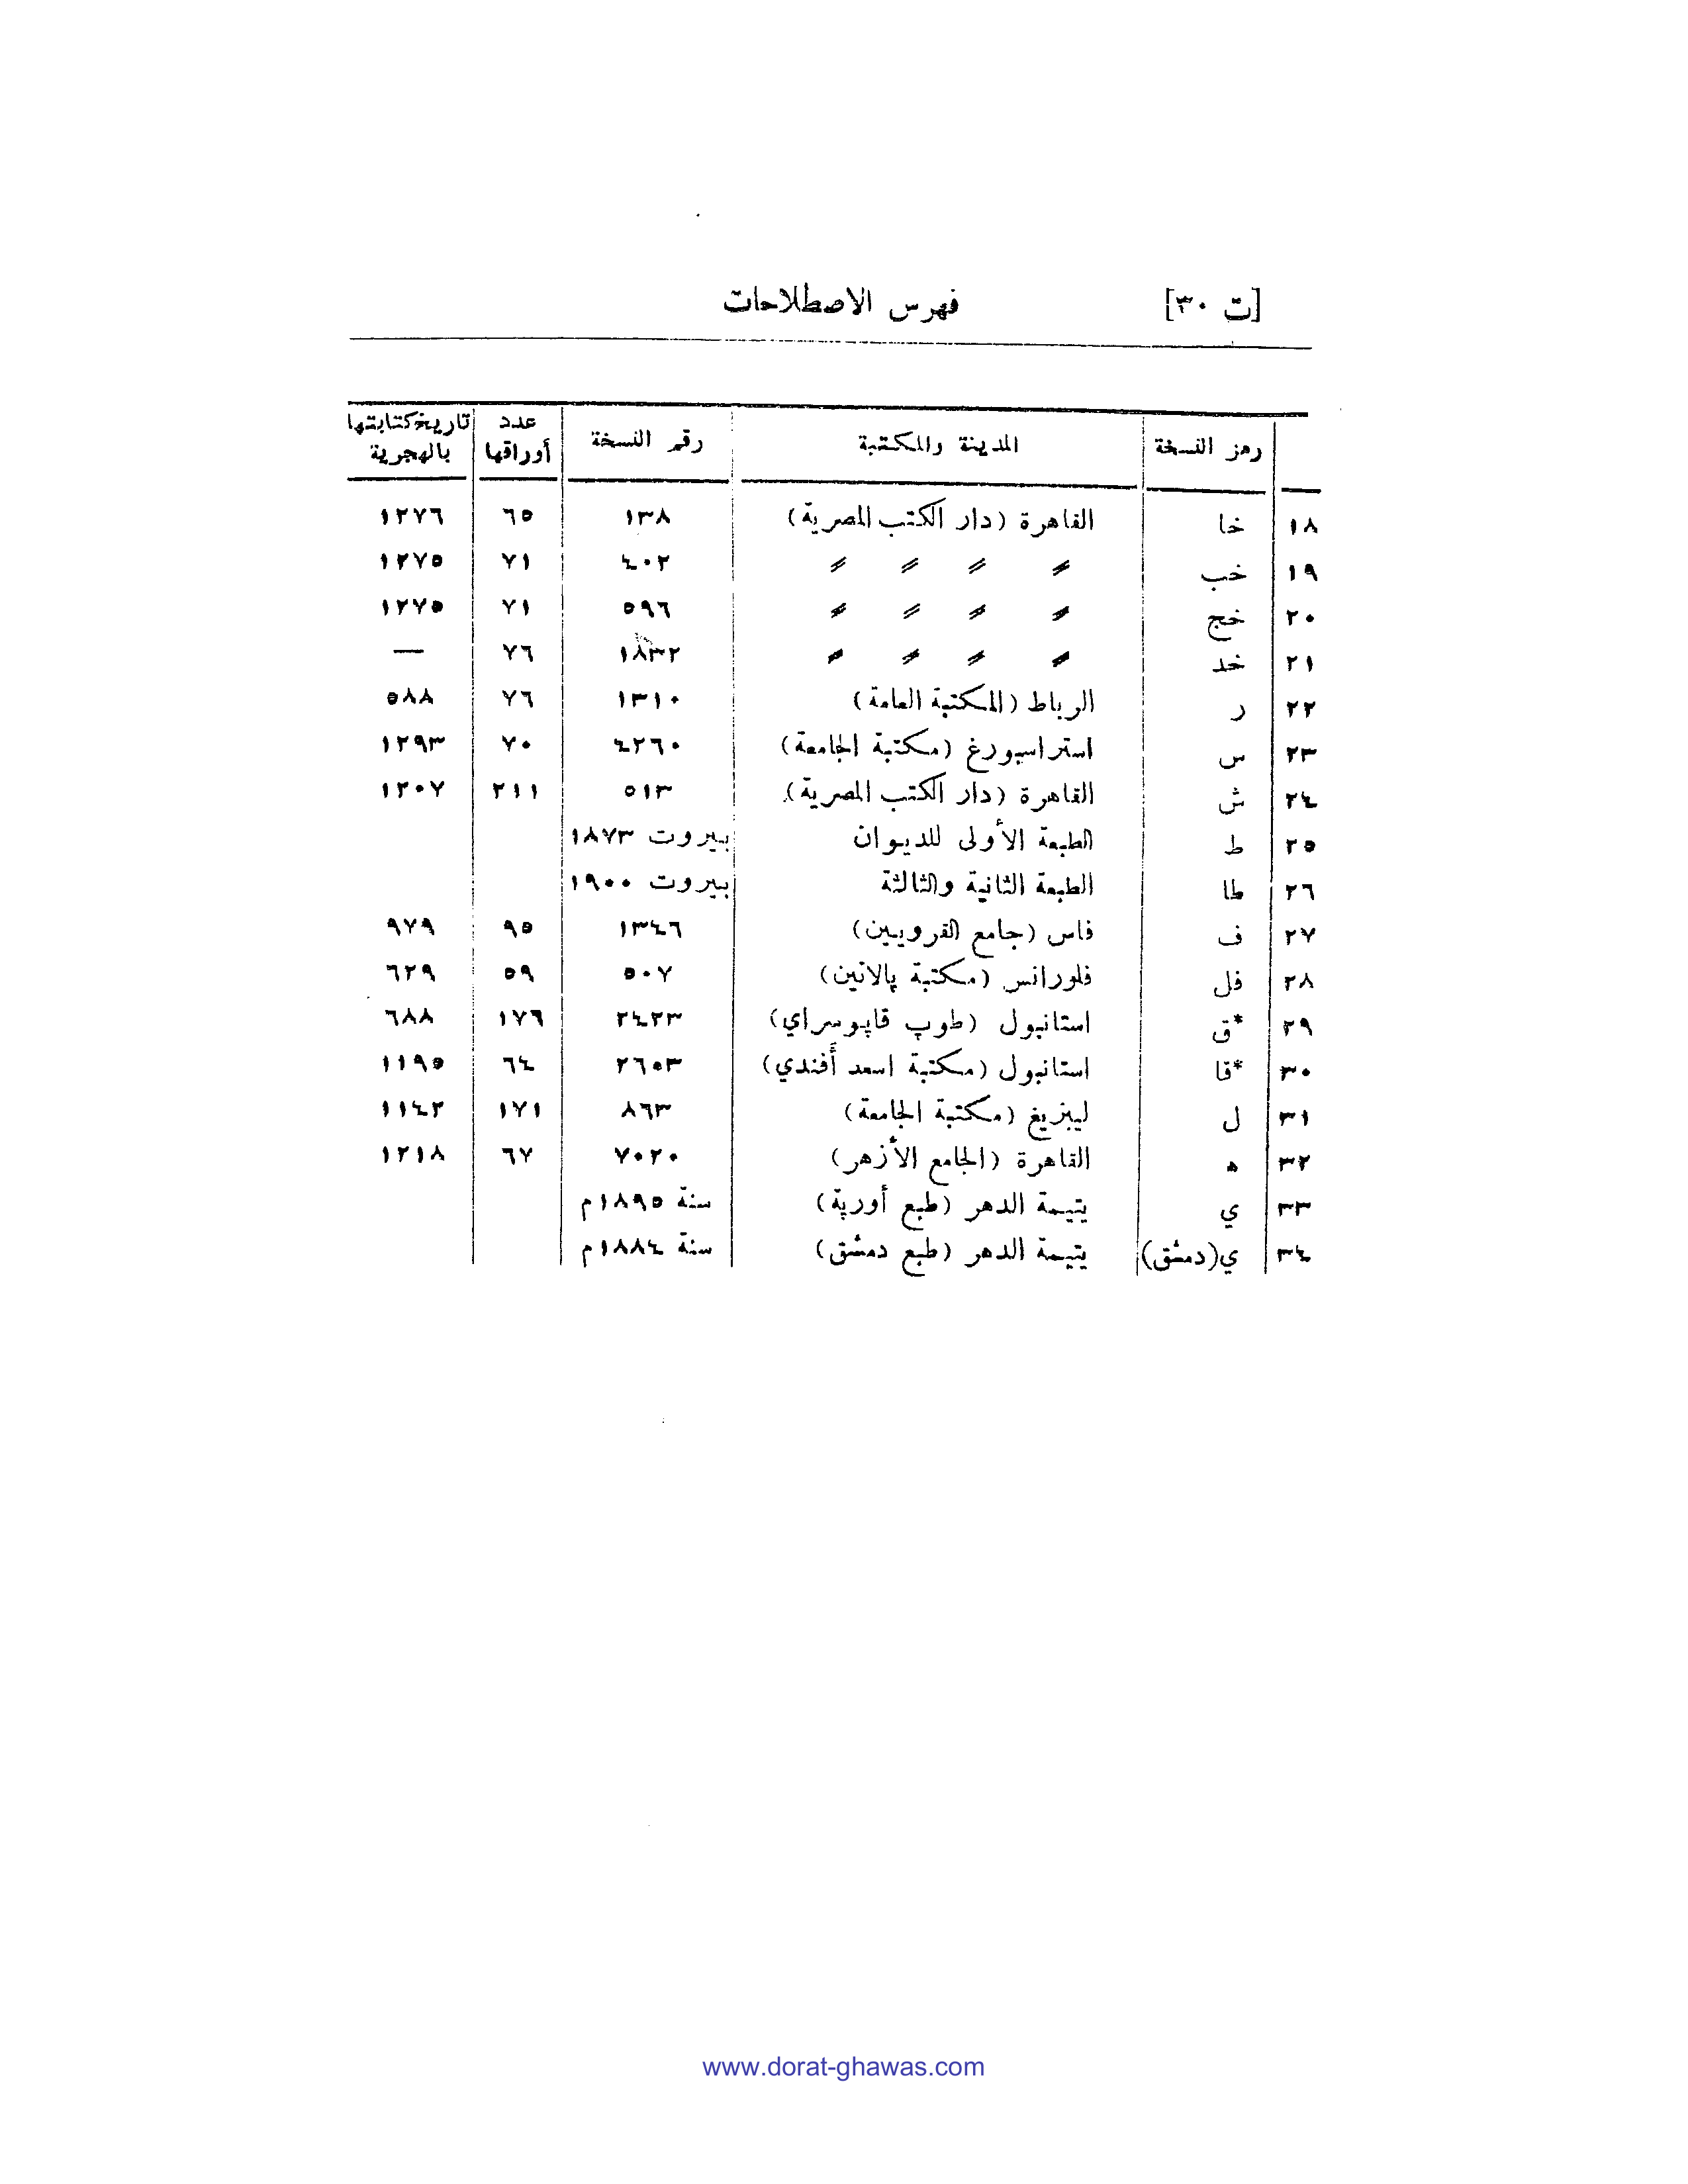 [ت ٣٠] فهرس الاصطلاحات
رمز النسخة المدينة والمكتبة رقم النسخة عدد أوراقها تاريخ كتابتها بالهجرية
١٨ خا القاهرة (دار الكتب المصرية) ١٣٨ ٦٥ ١٢٧٦
١٩ خب 〃 〃 〃 〃 ٤٠٢ ٧١ ١٢٧٥
٢٠ خج 〃 〃 〃 〃 ٥٩٦ ٧١ ١٢٧٥
٢١ خد 〃 〃 〃 〃 ١٨٣٢ ٧٦ —
٢٢ ر الرباط (المكتبة العامة) ١٣١٠ ٧٦ ٥٨٨
٢٣ س استراسبورغ (مكتبة الجامعة) ٤٢٦٠ ٧٠ ١٢٩٣
٢٤ ش القاهرة (دار الكتب المصرية) ٥١٣ ٢١١ ١٢٠٧
٢٥ ط الطبعة الأولى للديوان بيروت ١٨٧٣
٢٦ طا الطبعة الثانية والثالثة بيروت ١٩٠٠
٢٧ ف فاس (جامع القرويين) ١٣٤٦ ٩٥ ٩٧٩
٢٨ فل فلورانس (مكتبة پالاتين) ٥٠٧ ٥٩ ٦٢٩
٢٩ *ق استانبول (طوپ قاپوسراي) ٢٤٢٣ ١٧٦ ٦٨٨
٣٠ *قا استانبول (مكتبة اسعد أفندي) ٢٦٥٣ ٦٤ ١١٩٥
٣١ ل ليبزيغ (مكتبة الجامعة) ٨٦٣ ١٧١ ١١٤٢
٣٢ ه القاهرة (الجامع الأزهر) ٧٠٢٠ ٦٧ ١٢١٨
٣٣ ي يتيمة الدهر (طبع أورپة) سنة ١٨٩٥م
٣٤ ي(دمشق) يتيمة الدهر (طبع دمشق) سنة ١٨٨٤م
www.dorat-ghawas.com